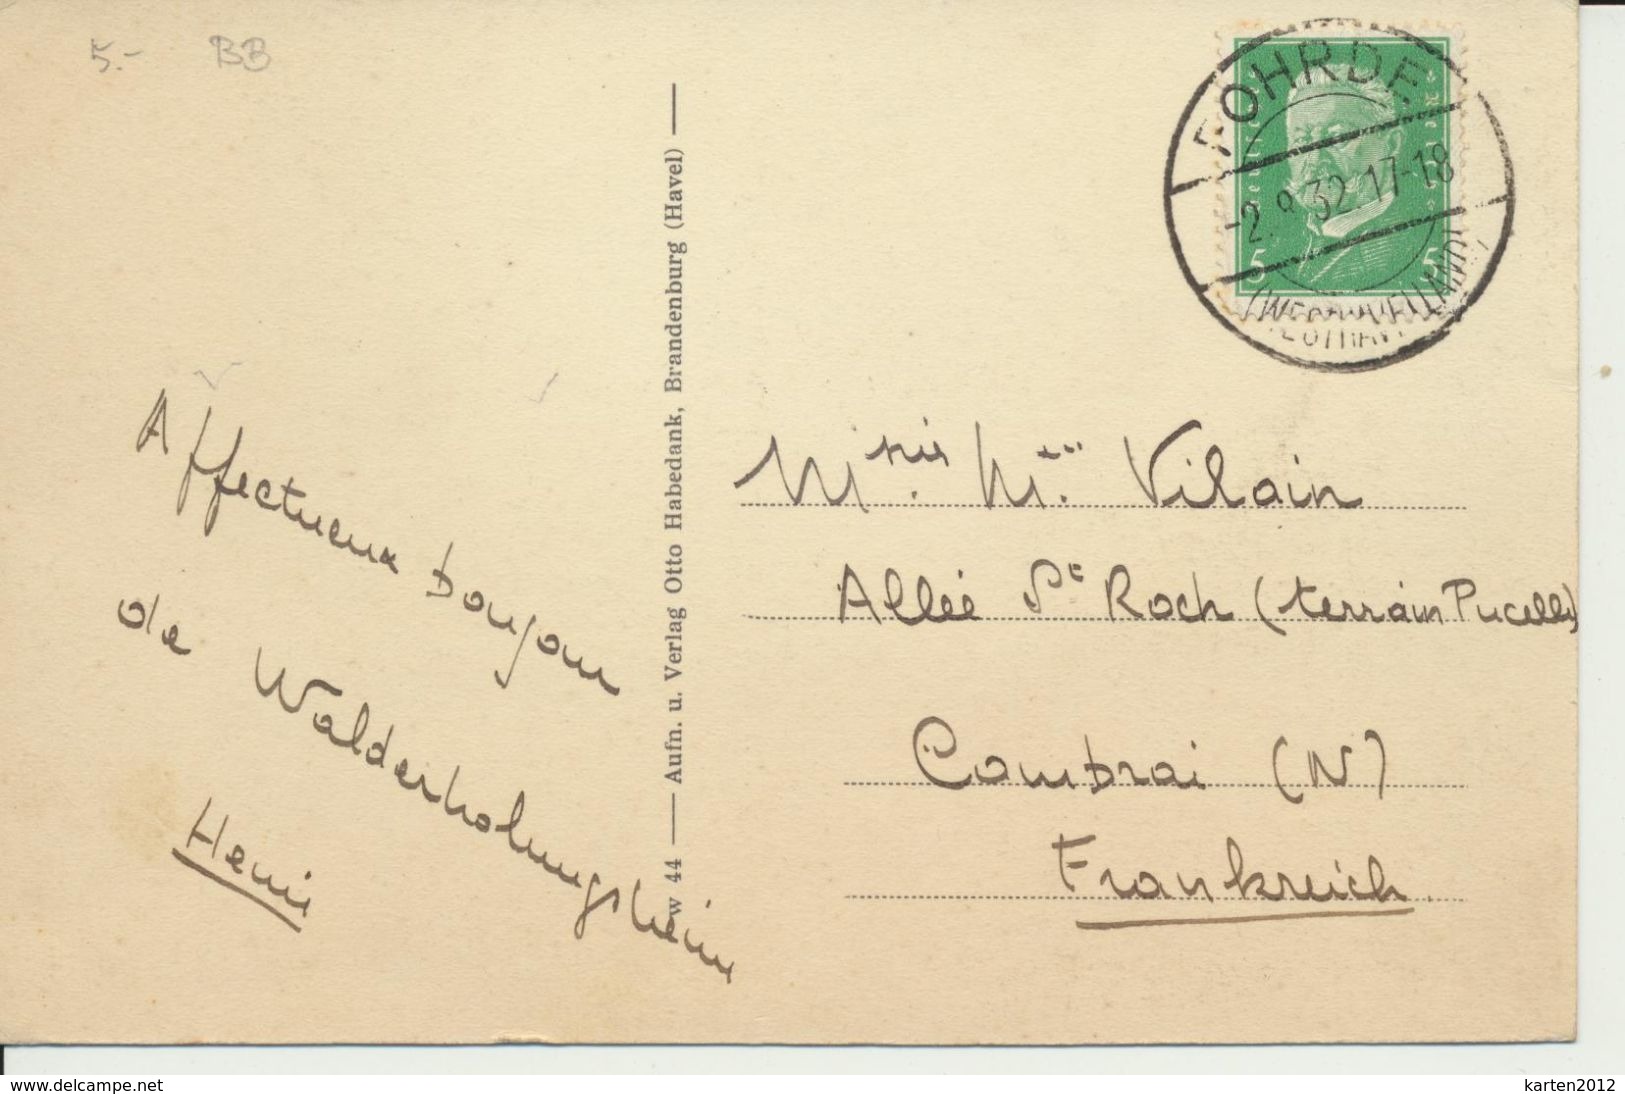 5.- BB
FOHRDE
-2.8.32.17-18
(WESTHAVELLAND)
5 5
Affectueux bonjour
de Walderholungsheim
Henri
w 44 — Aufn. u. Verlag Otto Habedank, Brandenburg (Havel) —
Vilain
Allée St Roch (terrain Pucelle)
Cambrai (N)
Frankreich.
www.delcampe.net
karten2012